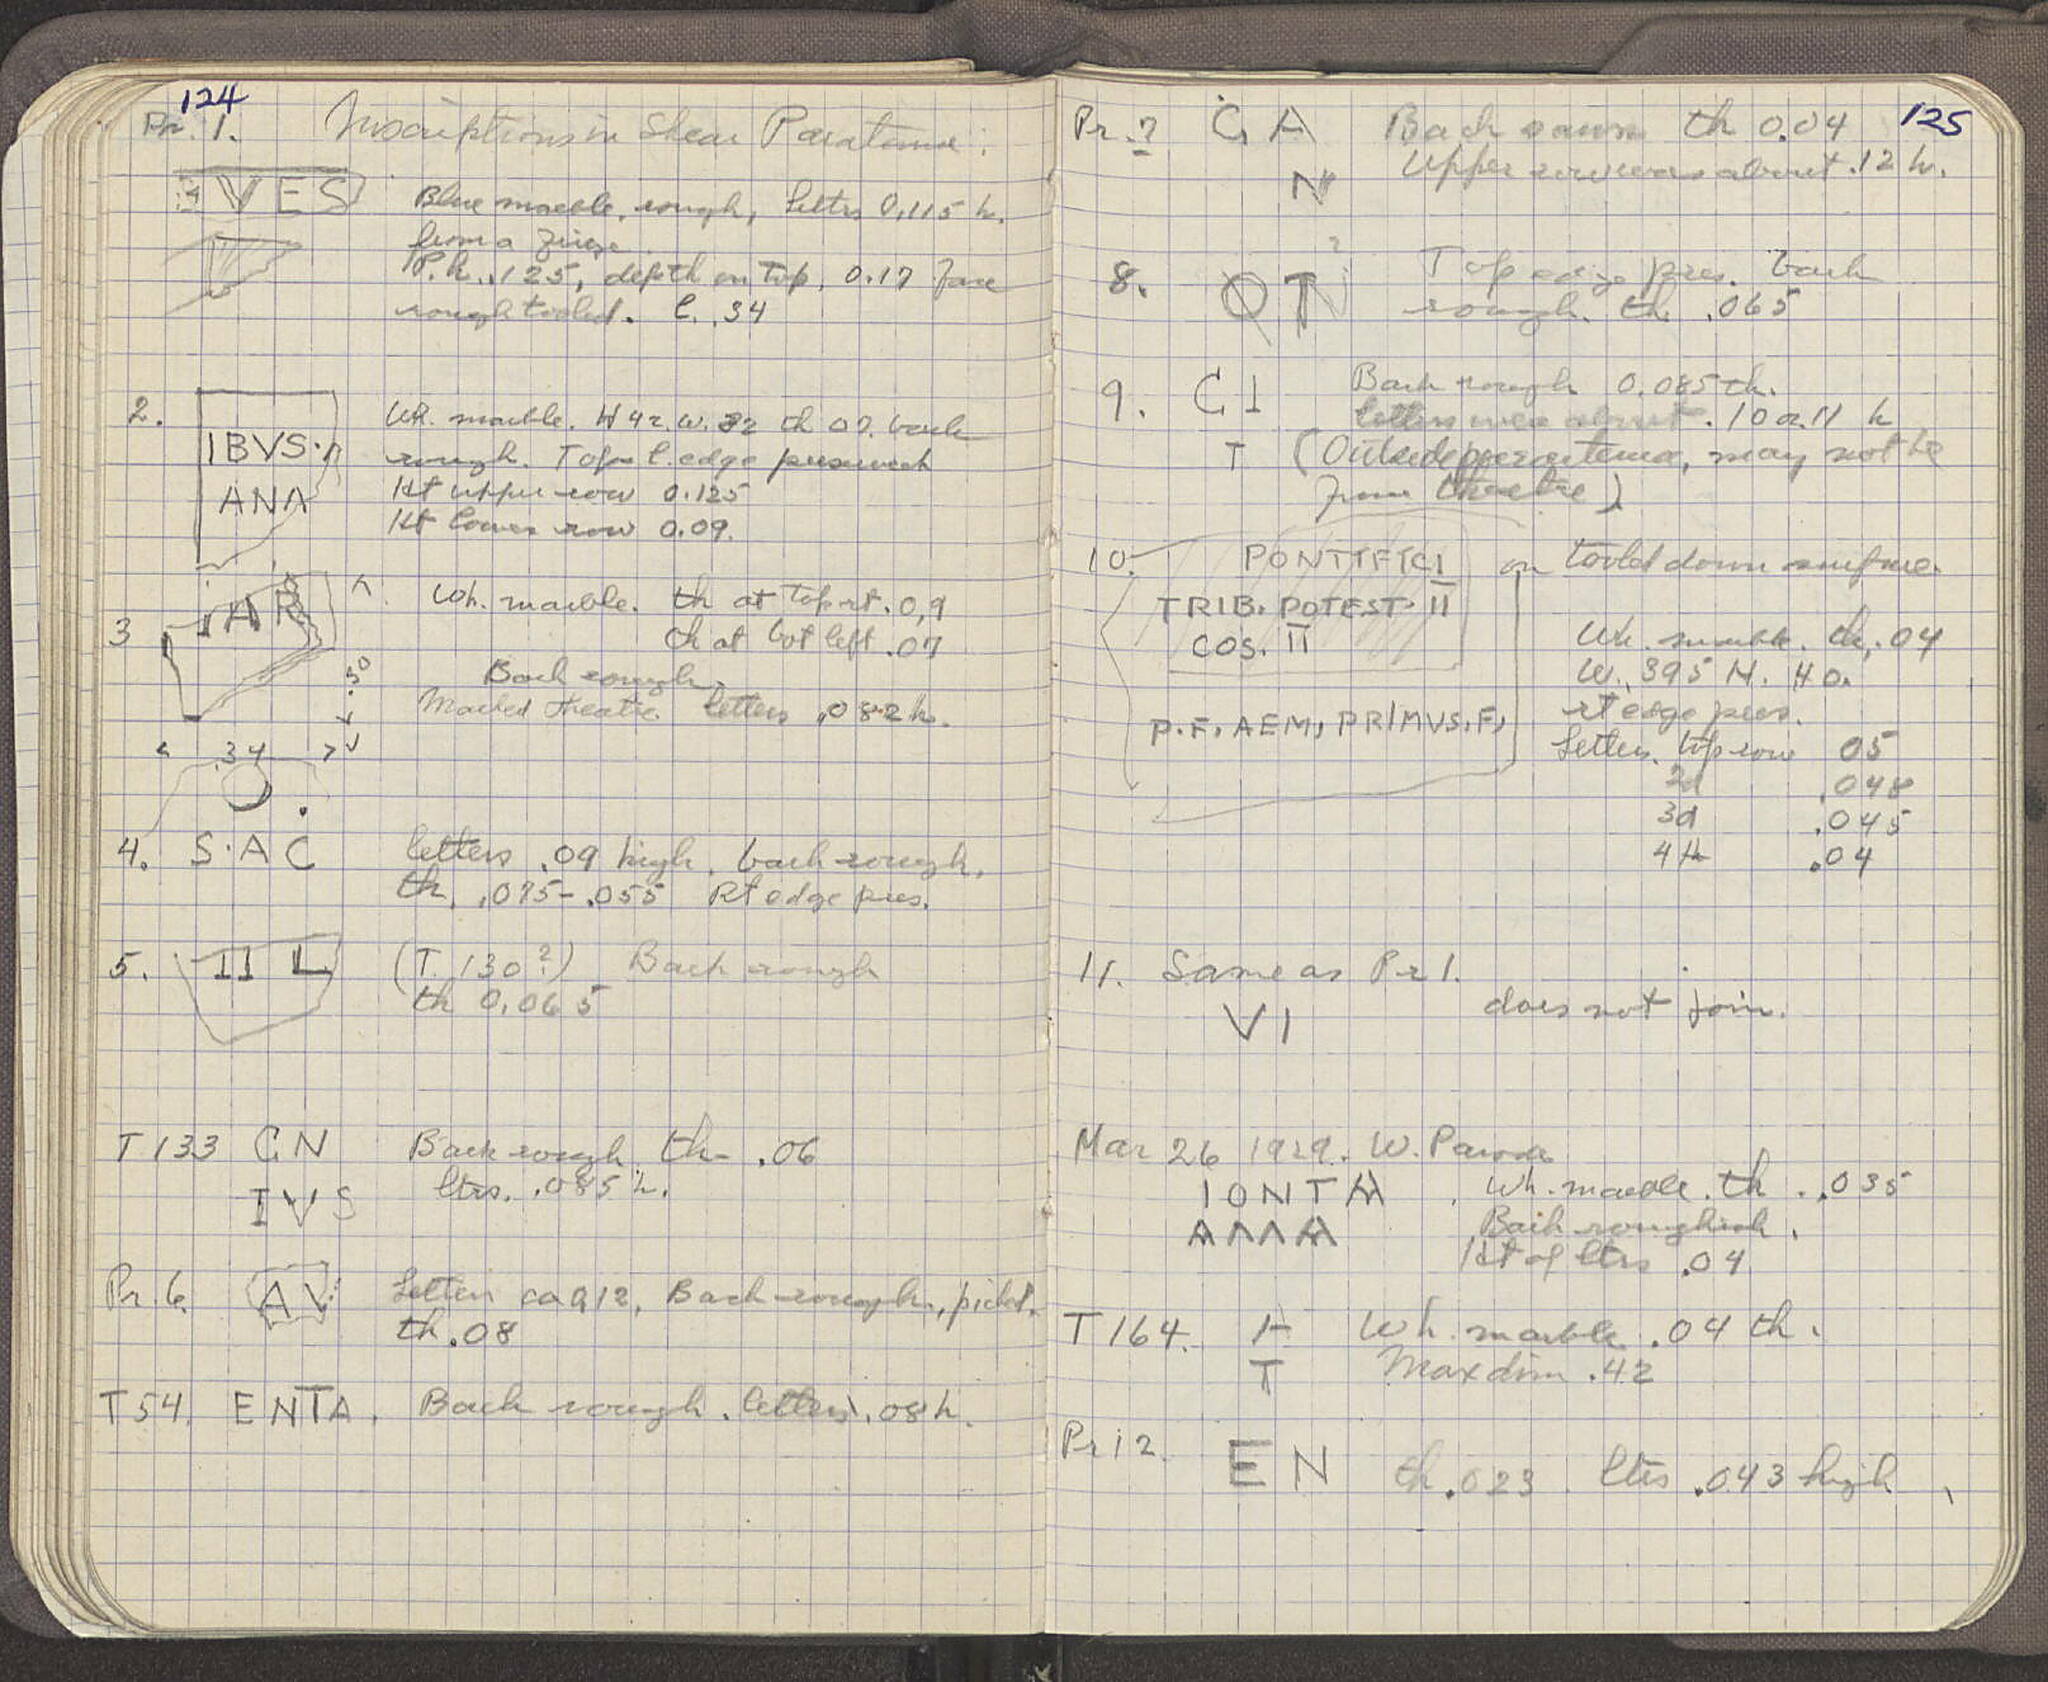 124
Pr. 1. Inscriptions in Shear Paratome:
VES
Blue marble, rough, letters 0.115 h.
from a
P.h. .125, depth on top, 0.17 face
rough tooled. l. .34
2.
IBVS·
ANA
Wh. marble. H 42. W. 32 th 07. back
rough. Top l. edge preserved
Ht upper row 0.125
Ht lower row 0.09.
3
IAR
Wh. marble. th at top rt. 0,9
th at bot left .07
Back rough
Marked theatre. letters .082 h.
.50
.34
4. S·AC
letters .09 high, back rough,
th. .075-.055 Rt edge pres.
5. II L
(T. 130?) Back rough
th 0.065
T 133 CN
IVS
Back rough th- .06
ltrs. .085 h.
Pr. 6. AV
Letters ca 0.12, Back rough, picked.
th .08
T 54. ENTA.
Back rough. letters .08 h.
125
Pr. 7 GA
N
Back sawn th 0.04
Upper row was about .12 h.
8. OT
Top edge pres. back
rough. th. .065
9. CI
T
Back rough 0.085 th.
letters were about .10 or 11 h
(Outside , may not be
from theatre)
10. PONTIFICI on tooled down surface.
TRIB. POTEST. II
COS. II
P. F. AEM, PRIMVS. F,
Wh. marble. th. .04
W. .395 H. 40.
rt edge pres.
Letters, top row 05
2d .048
3d .045
4th .04
11. Same as Pr 1.
VI
does not join.
Mar 26 1929. W.
IONTA
Wh. marble. th. .035
Back roughish.
Ht of ltrs .04
T 164. H
T
Wh. marble .04 th.
Max dim .42
Pr 12. EN
th .023 ltrs .043 high